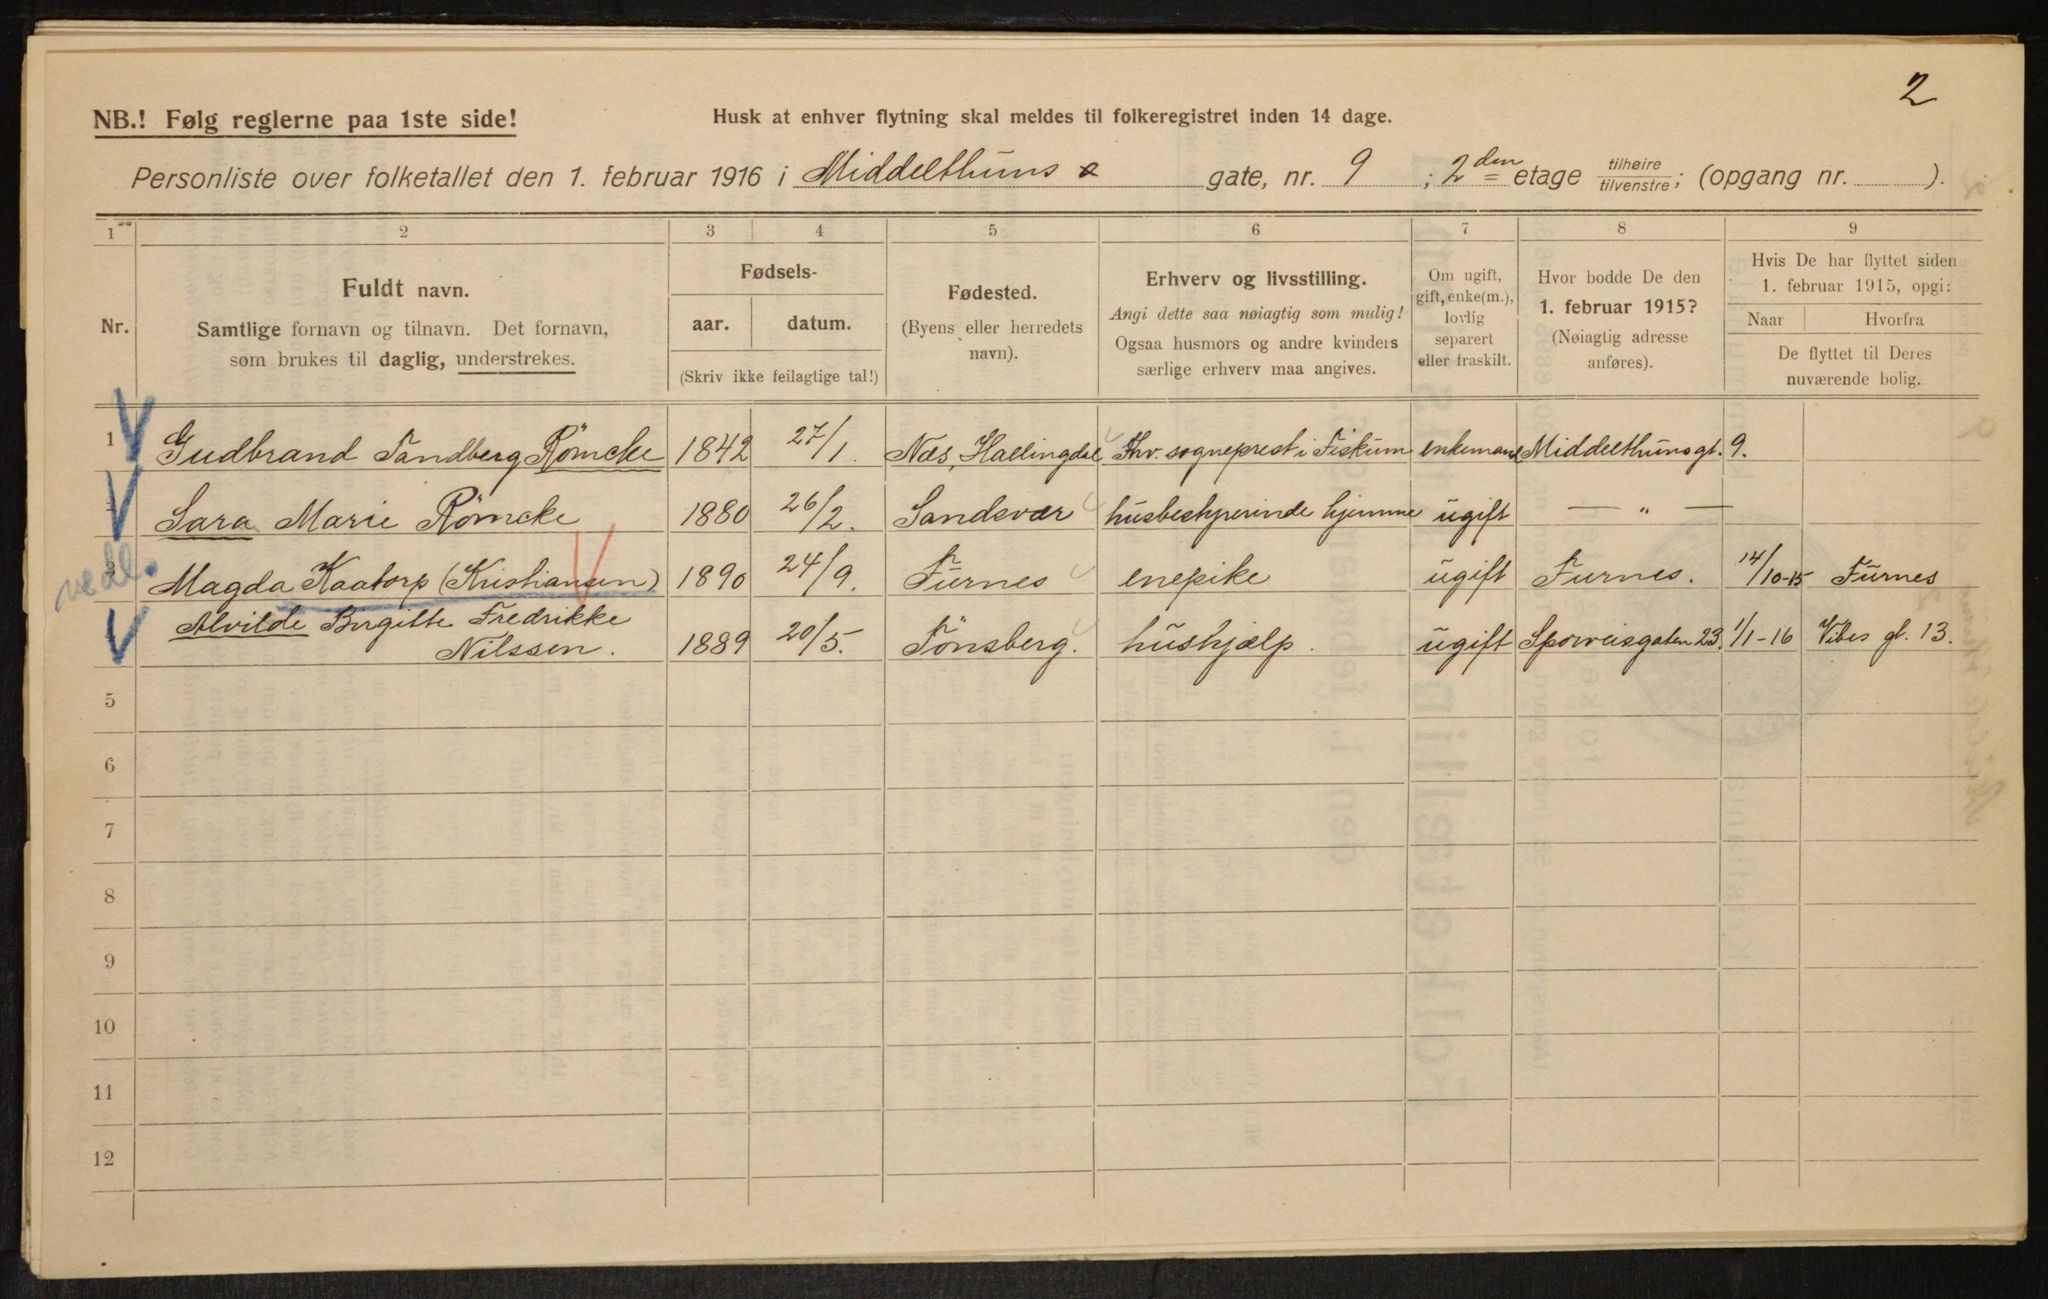 2
NB.! Følg reglerne paa 1ste side!
Husk at enhver flytning skal meldes til folkeregistret inden 14 dage.
Personliste over folketallet den 1. februar 1916 i Middelthuns gate, nr. 9 ; 2den etage tilhøire/tilvenstre; (opgang nr. ).
1 2 3 4 5 6 7 8 9
Nr.
Fuldt navn.
Samtlige fornavn og tilnavn. Det fornavn,
som brukes til daglig, understrekes.
Fødsels-
aar. datum.
(Skriv ikke feilagtige tal!)
Fødested.
(Byens eller herredets
navn).
Erhverv og livsstilling.
Angi dette saa nøiagtig som mulig!
Ogsaa husmors og andre kvinders
særlige erhverv maa angives.
Om ugift,
gift, enke(m.),
lovlig
separert
eller fraskilt.
Hvor bodde De den
1. februar 1915?
(Nøiagtig adresse
anføres).
Hvis De har flyttet siden
1. februar 1915, opgi:
Naar Hvorfra
De flyttet til Deres
nuværende bolig.
1 Gudbrand Tandberg Römcke 1842 27/1. Næs, Hallingdal Fhv. sogneprest i Fiskum enkemand Middelthunsgt. 9.
Sara Marie Römcke 1880 26/2. Sandsvær husbestyrerinde hjemme ugift — " —
vedl.
3 Magda Kaatorp (Kristiansen) 1890 24/9. Furnes enepike ugift Furnes. 14/10-15 Furnes
Alvilde Birgitte Fredrikke
Nilssen. 1889 20/5. Tönsberg. hushjælp. ugift Sporveisgaten 23. 1/1-16 Vibes gt. 13.
5
6
7
8
9
10
11
12